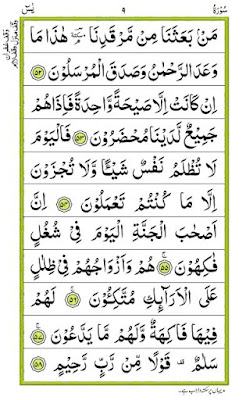 يٰسٓ ٩ سُوْرَةُ
مَنْۢ بَعَثَنَا مِنْ مَّرْقَدِنَا ۘ هٰذَا مَا
وَعَدَ الرَّحْمٰنُ وَصَدَقَ الْمُرْسَلُوْنَ ۝۵۲
اِنْ كَانَتْ اِلَّا صَيْحَةً وَّاحِدَةً فَاِذَا هُمْ
جَمِيْعٌ لَّدَيْنَا مُحْضَرُوْنَ ۝۵۳ فَالْيَوْمَ
لَا تُظْلَمُ نَفْسٌ شَيْـًٔا وَّلَا تُجْزَوْنَ
اِلَّا مَا كُنْتُمْ تَعْمَلُوْنَ ۝۵۴ اِنَّ
اَصْحٰبَ الْجَنَّةِ الْيَوْمَ فِيْ شُغُلٍ
فٰكِهُوْنَ ۝۵۵ هُمْ وَاَزْوَاجُهُمْ فِيْ ظِلٰلٍ
عَلَى الْاَرَآئِكِ مُتَّكِـُٔوْنَ ۝۵۶ لَهُمْ
فِيْهَا فَاكِهَةٌ وَّلَهُمْ مَّا يَدَّعُوْنَ ۝۵۷
سَلٰمٌ ۣ قَوْلًا مِّنْ رَّبٍّ رَّحِيْمٍ ۝۵۸